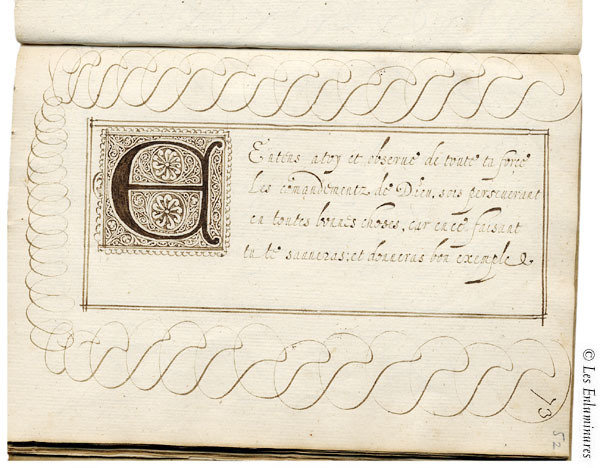 E
Entens atoy et, obserue de toute ta force
Les comandementz de Dieu, sois perseuerant
en toutes bonnes choses, car en ce faisant
tu te sauueras: et donneras bon exemple
13
52
© Les Enluminures